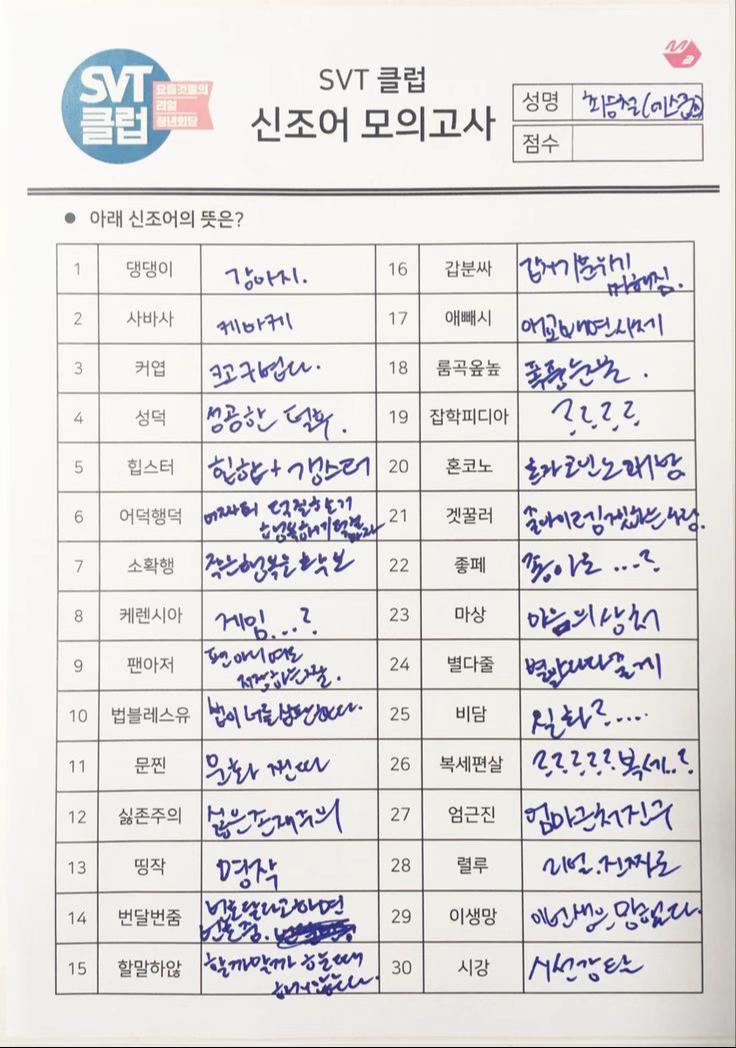 SVT
클럽
요즘것들의
리얼
청년회담
SVT 클럽
신조어 모의고사
성명 최승철
점수
● 아래 신조어의 뜻은?
1 댕댕이 강아지.
2 사바사 케바케
3 커엽 크고 귀엽다.
4 성덕 성공한 덕후.
5 힙스터 힙합+갱스터
6 어덕행덕 어짜피 덕질하는거
행복하게
7 소확행 작은행복을확보
8 케렌시아 게임...?
9 팬아저 팬 아니여도
저장하는짤.
10 법블레스유 법이 너를 살렸다.
11 문찐 문화 찐따
12 싫존주의 싫은존재주의
13 띵작 명작
14 번달번줌 번호달라고하면
번호줌.
15 할말하않 할까말까 할때
하지않는다.
16 갑분싸 갑자기분위기
17 애빼시 애교빼면시체
18 롬곡옾높 폭풍눈물.
19 잡학피디아 ????
20 혼코노 혼자코인노래방
21 겟꿀러
22 좋페 좋아요...?
23 마상 마음의상처
24 별다줄 별걸다줄게
25 비담 실화?....
26 복세편살 ?????복세..?
27 엄근진 엄마근처진구
28 렬루 리얼.진짜로
29 이생망 이번생은망했다.
30 시강 시선강탈